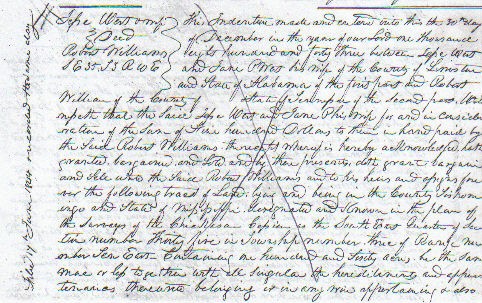 Jesse West & wife
To Deed
Robert Williams
S E 35 T 3 R 10 E
This Indenture made and entered into this the 30th day
of December in the year of our Lord one thousand
eight hundred and forty three between Jesse West
and Jane P West his wife of the County of
and State of Alabama of the first part and Robert
William of the County of State of of the second part
that the said Jesse West and Jane P his wife for and in consider
ration of the Sum of Five hundred Dollars to them in hand paid by
the Said Robert Williams the receipt whereof is hereby acknowledged hath
granted bargained and Sold and by these presents doth grant bargain
and Sell unto the Said Robert Williams and to his heirs and assigns for
ever the following tract of Land lying and being in the County Tishom
ingo and State of Mississippi designated and Known in the plan of
the Surveys of the Chickasaw Cession as the South East Quarter of Sec
tion number Thirty five in Township number three of Range num
ber Ten East Containing one hundred and Sixty acres be the Same
more or less together with all Singular the hereditaments and appur
tenances thereunto belonging or in any wise appertaining & also
Filed 17th June 1844 recorded the same day